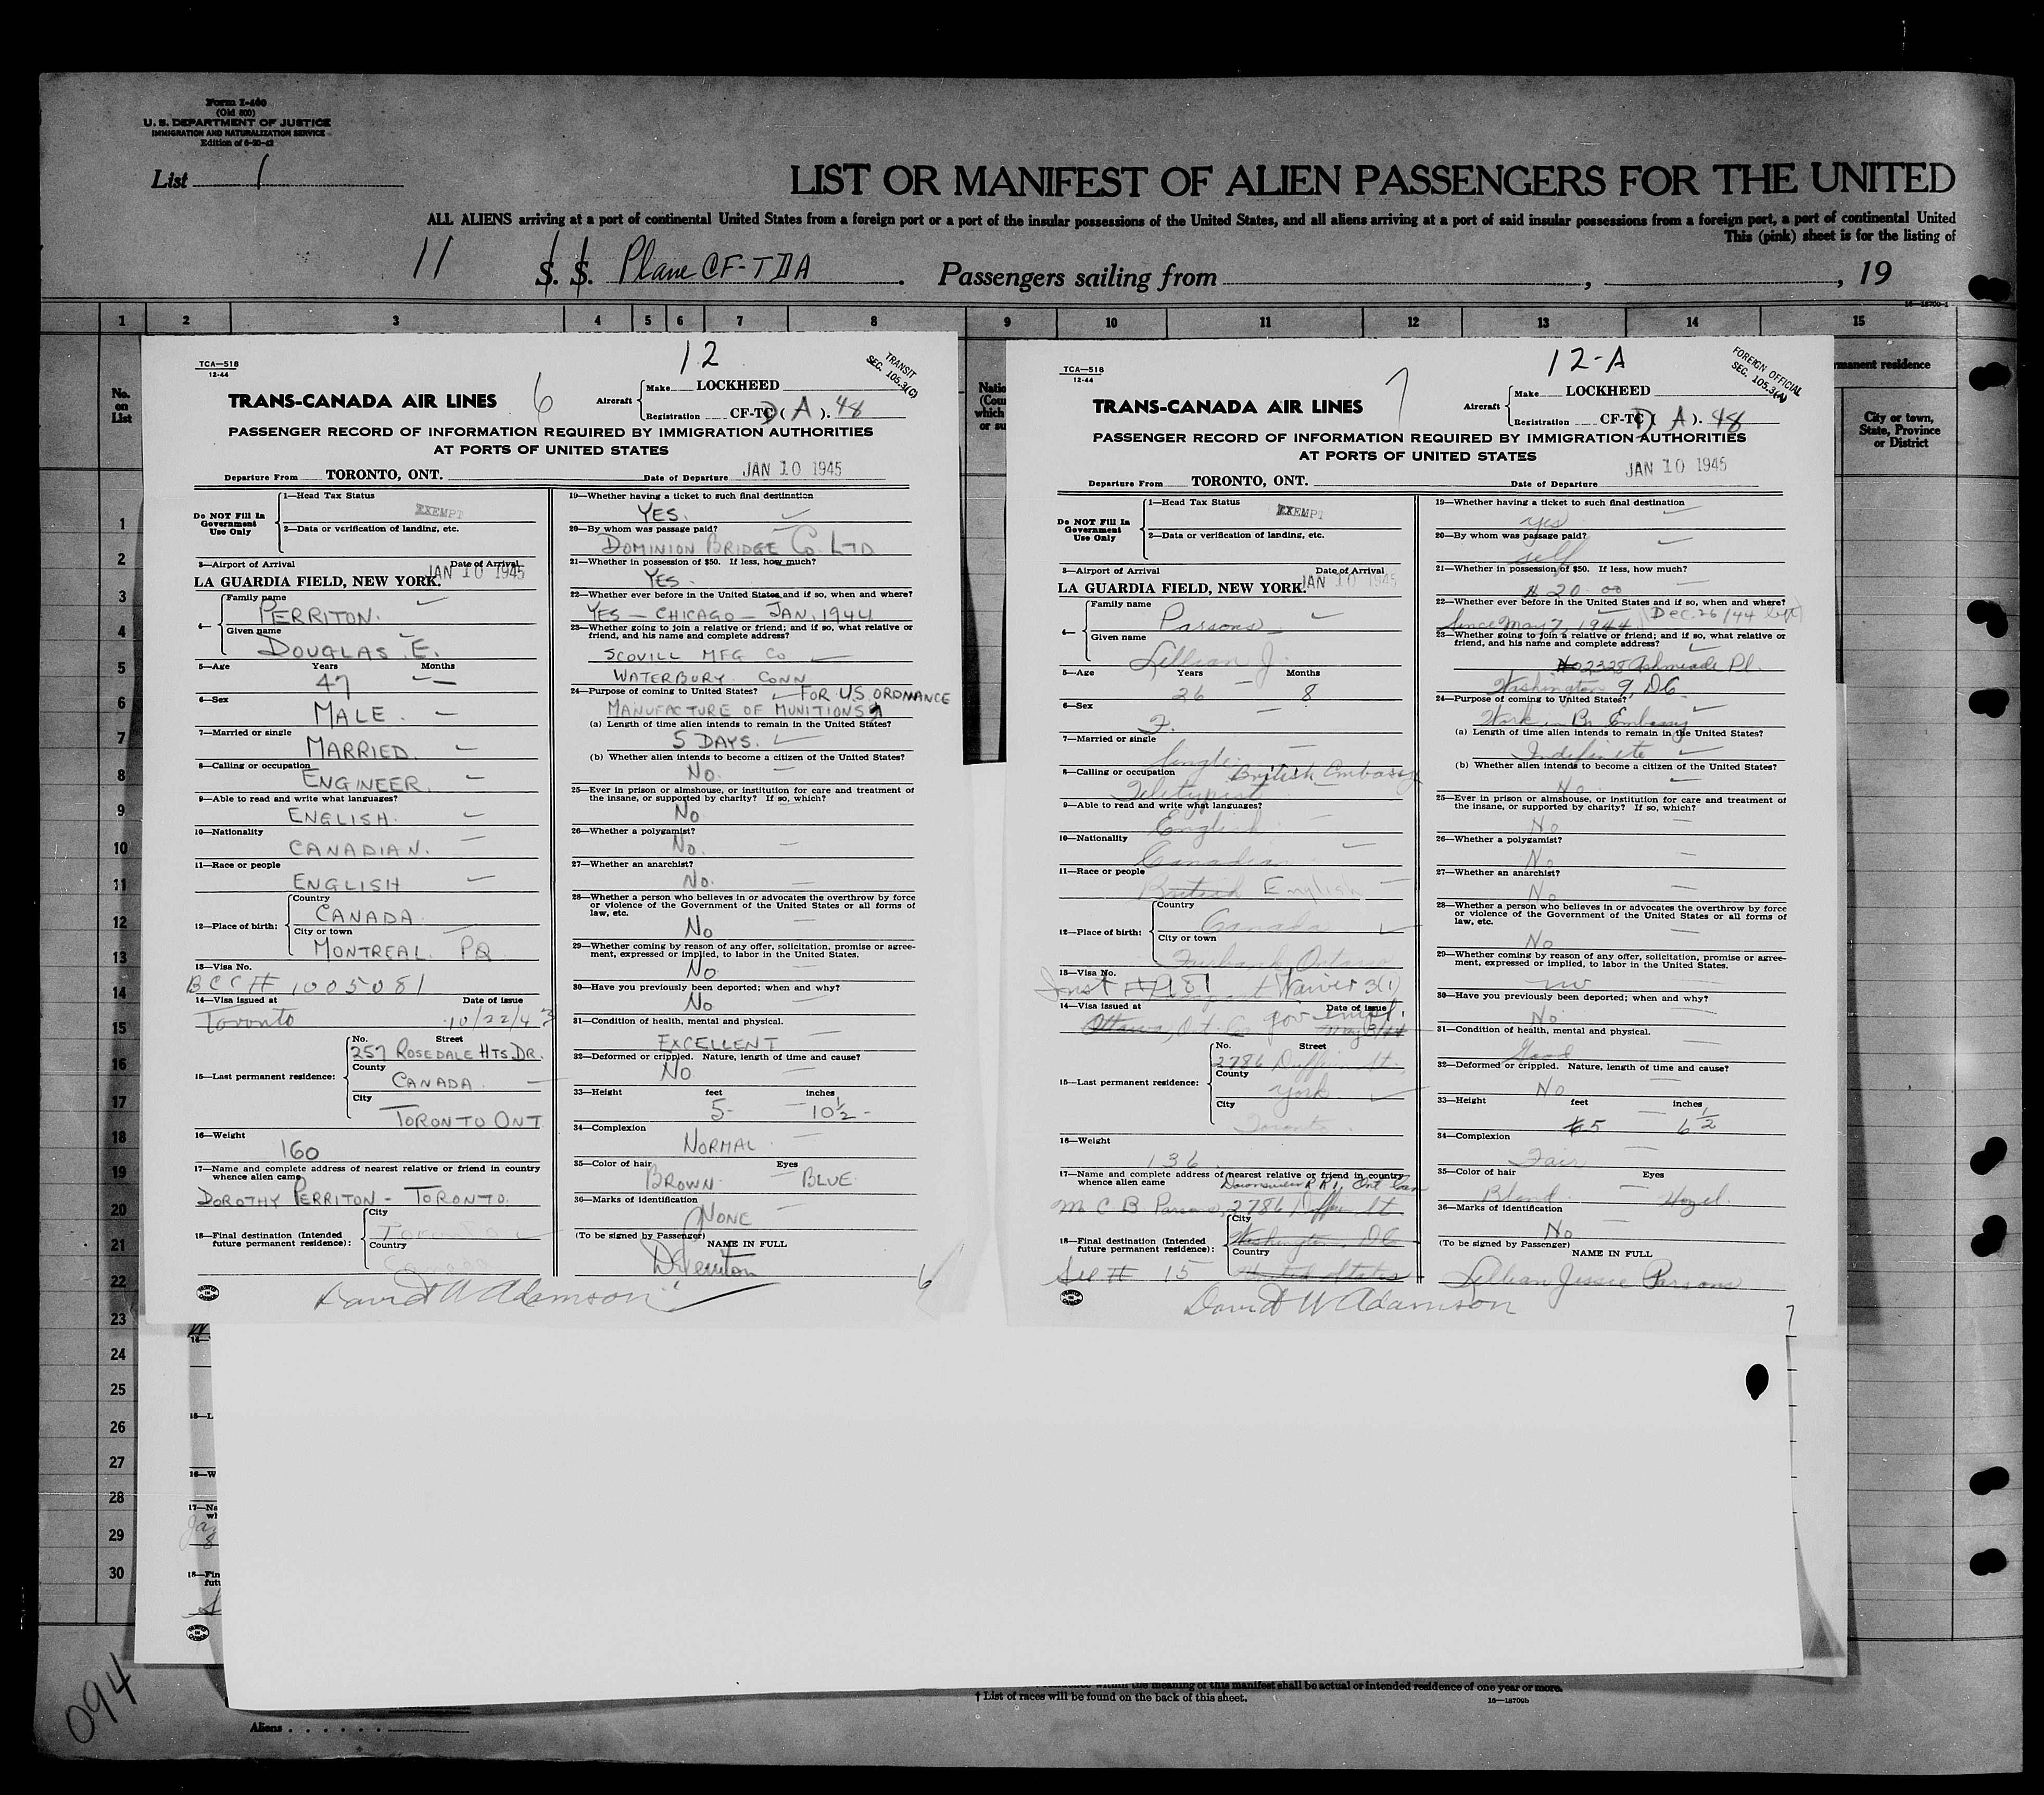 Form I-460
(Old 500)
U. S. DEPARTMENT OF JUSTICE
IMMIGRATION AND NATURALIZATION SERVICE
Edition of 6-20-42
List 1
LIST OR MANIFEST OF ALIEN PASSENGERS FOR THE UNITED
ALL ALIENS arriving at a port of continental United States from a foreign port or a port of the insular possessions of the United States, and all aliens arriving at a port of said insular possessions from a foreign port, a port of continental United
This (pink) sheet is for the listing of
11 S. S. Plane CF-TDA. Passengers sailing from , , 19
16—18709-1
1 2 3 4 5 6 7 8 9 10 11 12 13 14 15
No.
on
List
Natio
(Coun
which
or su
manent residence
City or town,
State, Province
or District
1
2
3
4
5
6
7
8
9
10
11
12
13
14
15
16
17
18
19
20
21
22
23
24
25
26
27
28
29
30
12
TCA—518
12-44
TRANSIT
SEC. 105.3(C)
TRANS-CANADA AIR LINES 6
Aircraft Make LOCKHEED
Registration CF-TD (A). 48
PASSENGER RECORD OF INFORMATION REQUIRED BY IMMIGRATION AUTHORITIES
AT PORTS OF UNITED STATES
Departure From TORONTO, ONT. Date of Departure JAN 10 1945
Do NOT Fill In
Government
Use Only
1—Head Tax Status
EXEMPT
2—Data or verification of landing, etc.
3—Airport of Arrival Date of Arrival
LA GUARDIA FIELD, NEW YORK. JAN 10 1945
4— Family name
PERRITON.
Given name
DOUGLAS E.
5—Age Years Months
47 —
6—Sex
MALE.
7—Married or single
MARRIED.
8—Calling or occupation
ENGINEER
9—Able to read and write what languages?
ENGLISH.
10—Nationality
CANADIAN.
11—Race or people
ENGLISH
12—Place of birth: Country
CANADA
City or town
MONTREAL PQ
13—Visa No.
BCC# 1005081
14—Visa issued at Date of issue
Toronto 10/22/43
15—Last permanent residence: No. Street
257 ROSEDALE HTS. DR.
County
CANADA
City
TORONTO ONT
16—Weight
160
17—Name and complete address of nearest relative or friend in country
whence alien came
DOROTHY PERRITON - TORONTO.
18—Final destination (Intended
future permanent residence): City
Toronto
Country
Canada
19—Whether having a ticket to such final destination
YES.
20—By whom was passage paid?
DOMINION BRIDGE CO. LTD
21—Whether in possession of $50. If less, how much?
YES.
22—Whether ever before in the United States and if so, when and where?
YES — CHICAGO — JAN. 1944
23—Whether going to join a relative or friend; and if so, what relative or
friend, and his name and complete address?
SCOVILL MFG CO
WATERBURY CONN
24—Purpose of coming to United States? FOR U.S. ORDNANCE
MANUFACTURE OF MUNITIONS
(a) Length of time alien intends to remain in the United States?
5 DAYS.
(b) Whether alien intends to become a citizen of the United States?
No.
25—Ever in prison or almshouse, or institution for care and treatment of
the insane, or supported by charity? If so, which?
No
26—Whether a polygamist?
No.
27—Whether an anarchist?
No.
28—Whether a person who believes in or advocates the overthrow by force
or violence of the Government of the United States or all forms of
law, etc.
No
29—Whether coming by reason of any offer, solicitation, promise or agree-
ment, expressed or implied, to labor in the United States.
No
30—Have you previously been deported; when and why?
No
31—Condition of health, mental and physical.
EXCELLENT
32—Deformed or crippled. Nature, length of time and cause?
No
33—Height feet inches
5- 10½ -
34—Complexion
NORMAL
35—Color of hair Eyes
BROWN BLUE
36—Marks of identification
NONE
(To be signed by Passenger)
NAME IN FULL
David W Adamson
6
12-A
TCA—518
12-44
FOREIGN OFFICIAL
TRANS-CANADA AIR LINES 7
Aircraft Make LOCKHEED
Registration CF-TD (A). 48
PASSENGER RECORD OF INFORMATION REQUIRED BY IMMIGRATION AUTHORITIES
AT PORTS OF UNITED STATES
Departure From TORONTO, ONT. Date of Departure JAN 10 1945
Do NOT Fill In
Government
Use Only
1—Head Tax Status
EXEMPT
2—Data or verification of landing, etc.
3—Airport of Arrival Date of Arrival
LA GUARDIA FIELD, NEW YORK. JAN 10 1945
4— Family name
Parsons
Given name
Lillian J.
5—Age Years Months
26 8
6—Sex
F.
7—Married or single
Single
8—Calling or occupation British Embassy
Teletypist
9—Able to read and write what languages?
English
10—Nationality
Canadian
11—Race or people
British English
12—Place of birth: Country
Canada
City or town
Fairbank, Ontario
13—Visa No.
Waiver 3(1)
14—Visa issued at Date of issue
Ottawa, Ont. gov empl.
15—Last permanent residence: No. Street
2786 Dufferin St.
County
York
City
Toronto
16—Weight
136
17—Name and complete address of nearest relative or friend in country
whence alien came Downsview RR1, Ont Can
M C B Parsons, 2786 Dufferin St
18—Final destination (Intended
future permanent residence): City
Washington, DC
Country
United States
See # 15
19—Whether having a ticket to such final destination
yes
20—By whom was passage paid?
self
21—Whether in possession of $50. If less, how much?
$ 20.00
22—Whether ever before in the United States and if so, when and where?
Since May 7, 1944 (Dec. 26/44 left)
23—Whether going to join a relative or friend; and if so, what relative or
friend, and his name and complete address?
No 2328 Ashmeade Pl.
Washington 9, DC.
24—Purpose of coming to United States?
Work in Br. Embassy
(a) Length of time alien intends to remain in the United States?
Indefinite
(b) Whether alien intends to become a citizen of the United States?
No
25—Ever in prison or almshouse, or institution for care and treatment of
the insane, or supported by charity? If so, which?
No
26—Whether a polygamist?
No
27—Whether an anarchist?
No
28—Whether a person who believes in or advocates the overthrow by force
or violence of the Government of the United States or all forms of
law, etc.
No
29—Whether coming by reason of any offer, solicitation, promise or agree-
ment, expressed or implied, to labor in the United States.
no
30—Have you previously been deported; when and why?
No
31—Condition of health, mental and physical.
Good
32—Deformed or crippled. Nature, length of time and cause?
No
33—Height feet inches
5 6½
34—Complexion
Fair
35—Color of hair Eyes
Blond Hazel
36—Marks of identification
No
(To be signed by Passenger)
NAME IN FULL
Lillian Jessie Parsons
David W Adamson
7
16—
15—L
16—W
17—Na
wh
18—Fin
futu
094
within the meaning of this manifest shall be actual or intended residence of one year or more.
† List of races will be found on the back of this sheet.
16—18709b
Aliens